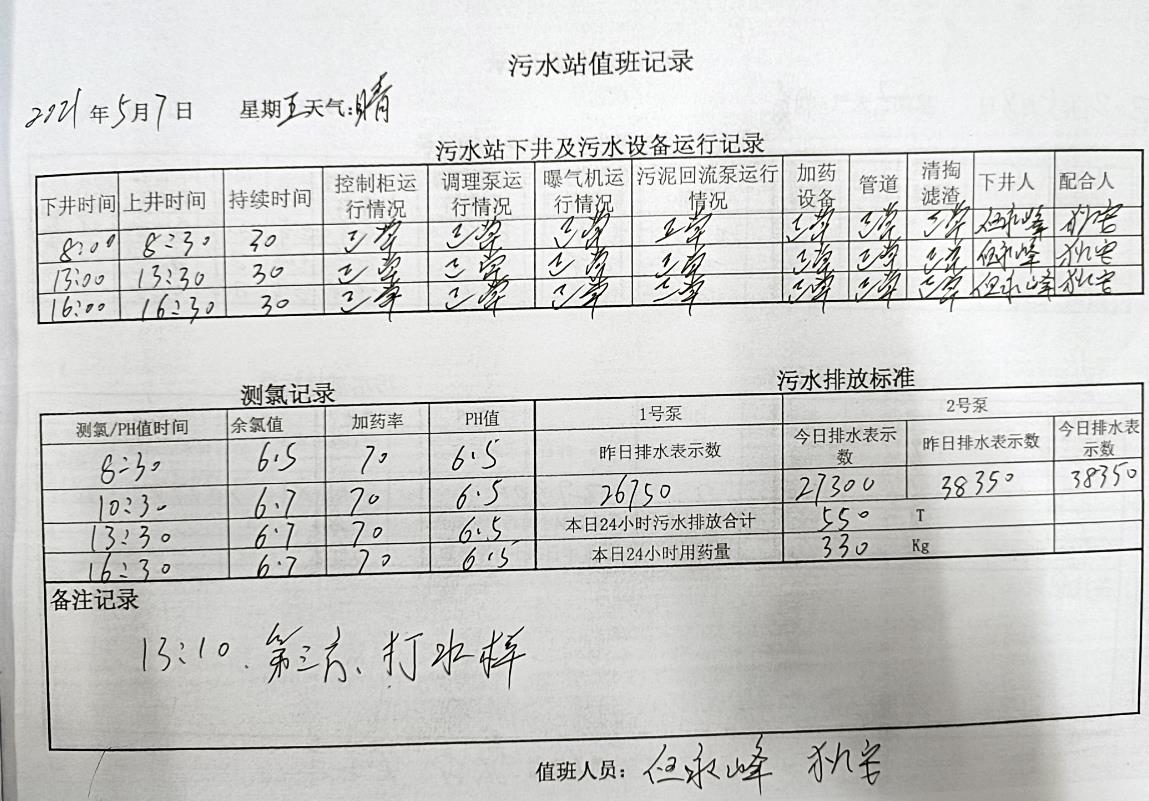 污水站值班记录
2021年5月7日 星期五天气:晴
污水站下井及污水设备运行记录
下井时间 上井时间 持续时间 控制柜运行情况 调理泵运行情况 曝气机运行情况 污泥回流泵运行情况 加药设备 管道 清掏滤渣 下井人 配合人
8:00 8:30 30 正常 正常 正常 正常 正常 正常 正常 任永峰
13:00 13:30 30 正常 正常 正常 正常 正常 正常 正常 任永峰
16:00 16:30 30 正常 正常 正常 正常 正常 正常 正常 任永峰
测氯记录 污水排放标准
测氯/PH值时间 余氯值 加药率 PH值 1号泵 2号泵
昨日排水表示数 今日排水表示数 昨日排水表示数 今日排水表示数
8:30 6.5 70 6.5
10:30 6.7 70 6.5 26750 27300 38350 38350
13:30 6.7 70 6.5 本日24小时污水排放合计 550 T
16:30 6.7 70 6.5 本日24小时用药量 330 Kg
备注记录
13:10、第三方、打水样
值班人员: 任永峰